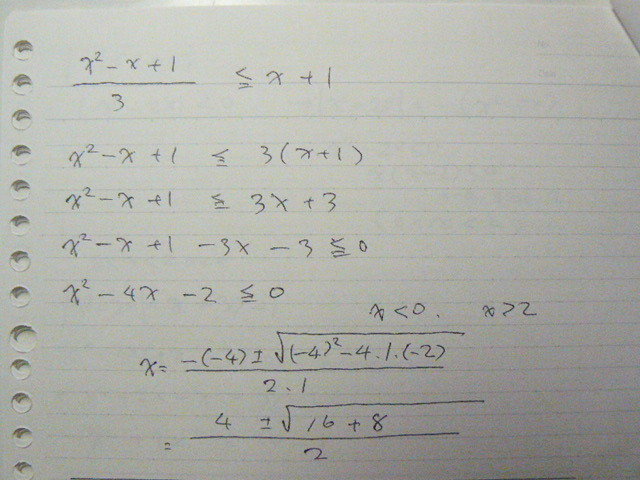 (x² - x + 1)/3 ≦ x + 1
x² - x + 1 ≦ 3(x+1)
x² - x + 1 ≦ 3x + 3
x² - x + 1 - 3x - 3 ≦ 0
x² - 4x - 2 ≦ 0
x < 0. x > 2
x = (-(-4) ± √((-4)² - 4・1・(-2)))/(2・1)
= (4 ± √(16 + 8))/2